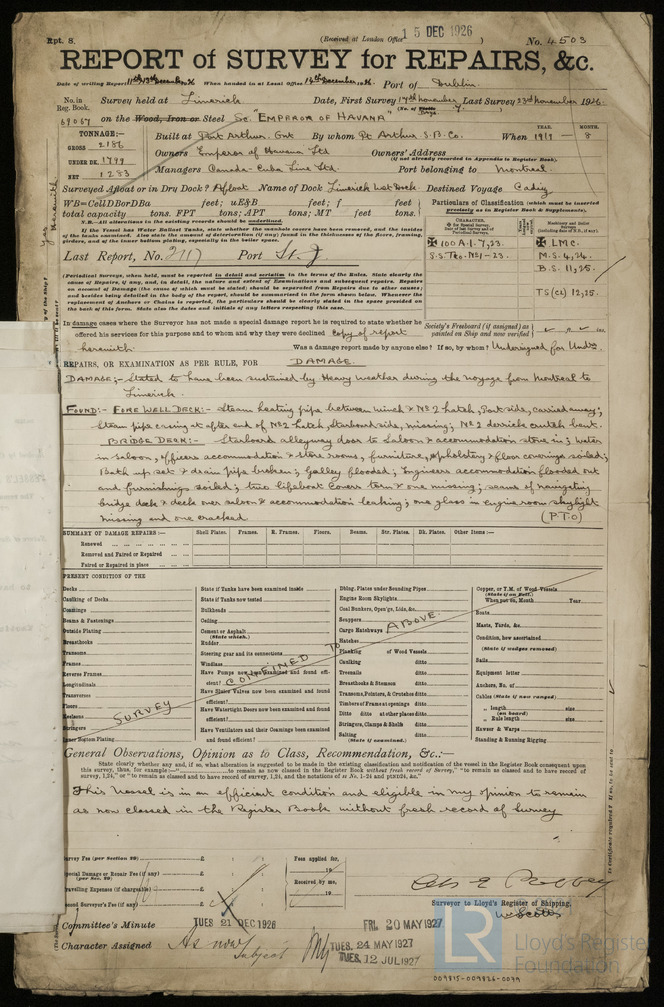 Rpt. 8.
(Received at London Office 15 DEC 1926)
No. 4503
REPORT of SURVEY for REPAIRS, &c.
Date of writing Report 11th/13th December 26 When handed in at Local Office 14th December 1926 Port of Dublin.
No. in Reg. Book. Survey held at Limerick Date, First Survey 17th November Last Survey 23rd November 1926
69067 on the Wood, Iron or Steel Sc. "EMPEROR OF HAVANA"
TONNAGE:—
GROSS 2186
UNDER DK. 1799
NET 1283
Built at Port Arthur. Ont By whom Pt Arthur S.B. Co. When 1919 — 8
YEAR. MONTH.
Owners Emperor of Havana Ltd Owners' Address
(if not already recorded in Appendix to Register Book.)
Managers Canada-Cuba Line Ltd. Port belonging to Montreal.
Surveyed Afloat or in Dry Dock? Afloat Name of Dock Limerick Wet Dock. Destined Voyage
WB=CellDBorDBa feet; uE&B feet; f feet
total capacity tons. FPT tons; APT tons; MT feet tons.
N.B.—All alterations in the existing records should be underlined.
Last Report, No. 2117 Port St. J
Particulars of Classification (which must be inserted precisely as in Register Book & Supplements).
100 A.1. 7,23.
S.S. Pto. No1-23.
LMC.
M.S. 4,24.
B.S. 11,25.
TS(CL) 12,25.
(Periodical Surveys, when held, must be reported in detail and seriatim in the terms of the Rules. State clearly the cause of Repairs, if any, and, in detail, the nature and extent of Examinations and subsequent repairs. Repairs on account of Damage (the cause of which must be stated) should be separated from Repairs due to other causes; and besides being detailed in the body of the report, should be summarized in the form shown below. Whenever the replacement of Anchors or Chains is reported, the particulars should be clearly stated in the space provided on the back of this form. State also the dates and initials of any letters respecting this case.
Society's Freeboard (if assigned) as painted on Ship and now verified
In damage cases where the Surveyor has not made a special damage report he is required to state whether he
offered his services for this purpose and to whom and why they were declined Copy of report
herewith Was a damage report made by anyone else? If so, by whom? Undersigned for Undrs
REPAIRS, OR EXAMINATION AS PER RULE, FOR DAMAGE.
DAMAGE:- Stated to have been sustained by Heavy Weather during the voyage from Montreal to
Limerick.
FOUND:- FORE WELL DECK:- Steam heating pipe between winch & No 2 hatch, Port side, carried away;
Steam pipe casing at after end of No 2 hatch, Starboard side, missing; No 2 derrick crutch bent.
BRIDGE DECK:- Starboard alleyway door to Saloon & accommodation stove in; water
in saloon, officers accommodation & store rooms, furniture, upholstery & floor coverings soiled;
Bath upset & drain pipe broken; Galley flooded; Engineers accommodation flooded out
and furnishings soiled; two lifeboat covers torn & one missing; seams of navigating
bridge deck & deck over saloon & accommodation leaking; one glass in engine room skylight
missing and one cracked. (P.T.O)
SUMMARY OF DAMAGE REPAIRS:—
Shell Plates. Frames. R. Frames. Floors. Beams. Str. Plates. Dk. Plates. Other Items:—
Renewed
Removed and Faired or Repaired
Faired or Repaired in place
PRESENT CONDITION OF THE
Decks
Caulking of Decks
Coamings
Beams & Fastenings
Outside Plating
Breasthooks
Transoms
Frames
Reverse Frames
Longitudinals
Transverses
Floors
Keelsons
Stringers
Inner Bottom Plating
State if Tanks have been examined inside
State if Tanks now tested
Bulkheads
Ceiling
Cement or Asphalt
(State which.)
Rudder
Steering gear and its connections
Windlass
Have Pumps now been examined and found efficient?
Have Sluice Valves now been examined and found efficient?
Have Watertight Doors now been examined and found efficient?
Have Ventilators and their Coamings been examined and found efficient?
Dblng. Plates under Sounding Pipes
Engine Room Skylights
Coal Bunkers, Open'gs, Lids, &c.
Scuppers
Cargo Hatchways
Hatches
Planking of Wood Vessels
Caulking ditto
Treenails ditto
Breasthooks & Stemson ditto
Transoms, Pointers, & Crutches ditto
Timbers of Frame at openings ditto
Ditto ditto at other places ditto
Stringers, Clamps & Shelfs ditto
Salting ditto
(State if examined.)
Copper, or Y.M. of Wood Vessels
(State if on Felt.)
When put on, Month Year
Boats
Masts, Yards, &c.
Condition, how ascertained
(State if wedges removed)
Sails
Equipment letter
Anchors, No. of
Cables (State if now ranged)
" length size
(on board)
" Rule length size
Hawser & Warps
Standing & Running Rigging
SURVEY CONFINED TO ABOVE.
General Observations, Opinion as to Class, Recommendation, &c.:—
State clearly whether any and, if so, what alteration is suggested to be made in the existing classification and notification of the vessel in the Register Book consequent upon
This Vessel is in an efficient condition and eligible in my opinion to remain
as now classed in the Register Book without fresh record of survey
Survey Fee (per Section 29) £
Special Damage or Repair Fee (if any) £
(per Sec. 29)
Travelling Expenses (if chargeable) £
Second Surveyor's Fee (if any) £
Fees applied for, 19
Received by me, 19
Surveyor to Lloyd's Register of Shipping.
W. Scott
Committee's Minute TUES 21 DEC 1926 FRI. 20 MAY 1927
Character Assigned As now Subject TUES. 24 MAY 1927
TUES. 12 JUL 1927
LR
Lloyd's Register
Foundation
009815-009826-0099